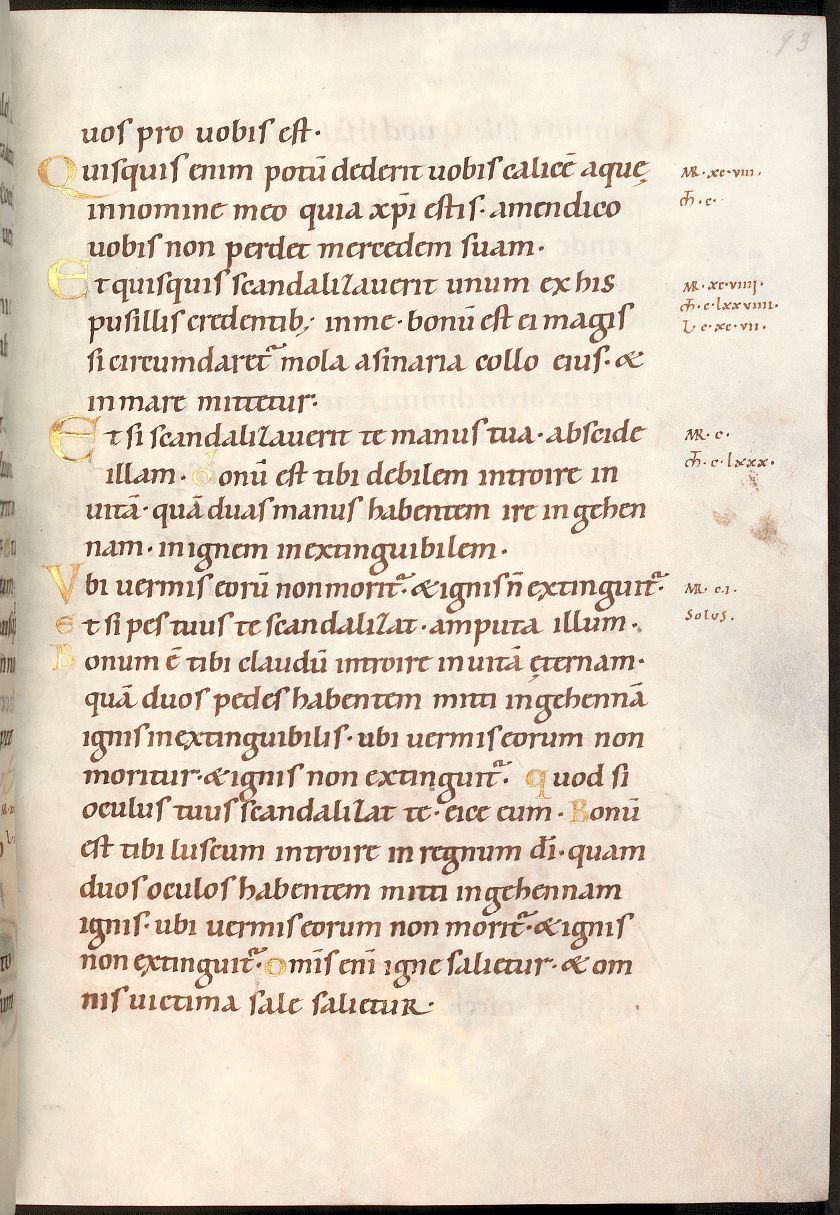 93
uos pro uobis est·
Quisquis enim potū dederit uobis calicē aquę
in nomine meo quia xp̄i estis· amen dico
uobis non perdet mercedem suam·
Et quisquis scandalizauerit unum ex his
pusillis credentib; in me· bonū est ei magis
si circumdaret᷑ mola asinaria collo eius· &
in mare mittetur·
Et si scandalizauerit te manus tua· abscide
illam· Bonū est tibi debilem introire in
uitā· quā duas manus habentem ire in gehen
nam· in ignem inextinguibilem·
Vbi uermis eorū non morit᷑· & ignis n̄ extinguit᷑·
Et si pes tuus te scandalizat· amputa illum·
Bonum ē tibi claudū introire in uitā ęternam·
quā duos pedes habentem mitti in gehennā
ignis inextinguibilis· ubi uermis eorum non
moritur· & ignis non extinguit᷑· quod si
oculus tuus scandalizat te· eice eum· Bonū
est tibi luscum introire in regnum dī· quam
duos oculos habentem mitti in gehennam
ignis· ubi uermis eorum non morit᷑· & ignis
non extinguit᷑· omīs enī igne salietur· & om
nis uictima sale salietur·
MR· xc·viii·
m̄t· c·
MR· xc·viiii·
m̄t· c·lxxviiii·
L· c·xc·vii·
MR· c·
m̄t· c·lxxx·
MR· c·i·
Solus·